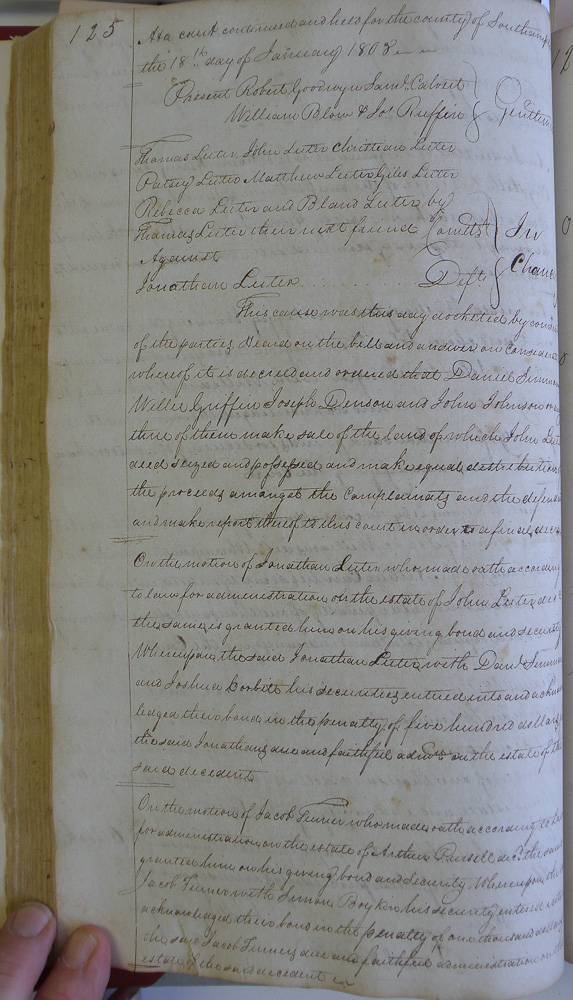 125
At a court continued and held for the county of Southamp
the 18th day of January 1808
Present Robert Goodwyn Saml. Calvert
William Blow & Jos Ruffin } Gentlem
Thomas Luter, John Luter Christian Luter
Patsey Luter Matthew Luter Giles Luter
Rebecca Luter and Bland Luter by
Thomas Luter their next friend Complts
Against
Jonathan Luter Deft } In Chanc
This cause was this day docketed by cons
of the parties, heard on the bill and answer on considerat
whereof it is decreed and ordered that Daniel Simmon
Willie Griffin Joseph Denson and John Johnson or a
three of them make sale of the land of which John Lut
died seized and possessed and make equal distribution
the proceeds amongst the complainants and the defen
and make report thereof to this court in order to a final decre
On the motion of Jonathan Luter who made oath according
to law for administration on the estate of John Luter decd
the same is granted him on his giving bond and security
Whereupon the said Jonathan Luter with Danl. Simmon
and Joshua his securities entered into and acknow
ledged their bond in the penalty of five hundred dollars
the said Jonathans due and faithful admon on the estate of the
said decedent
On the motion of Jacob Turner who made oath according to law
for administration on the estate of Arthur Russell decd the same
granted him on his giving bond and security Whereupon the
Jacob Turner with Simon Boykin his security entered into
acknowledged their bond in the penalty of one thousand dollars
the said Jacob Turners due and faithful administration on the
estate of the said decedent